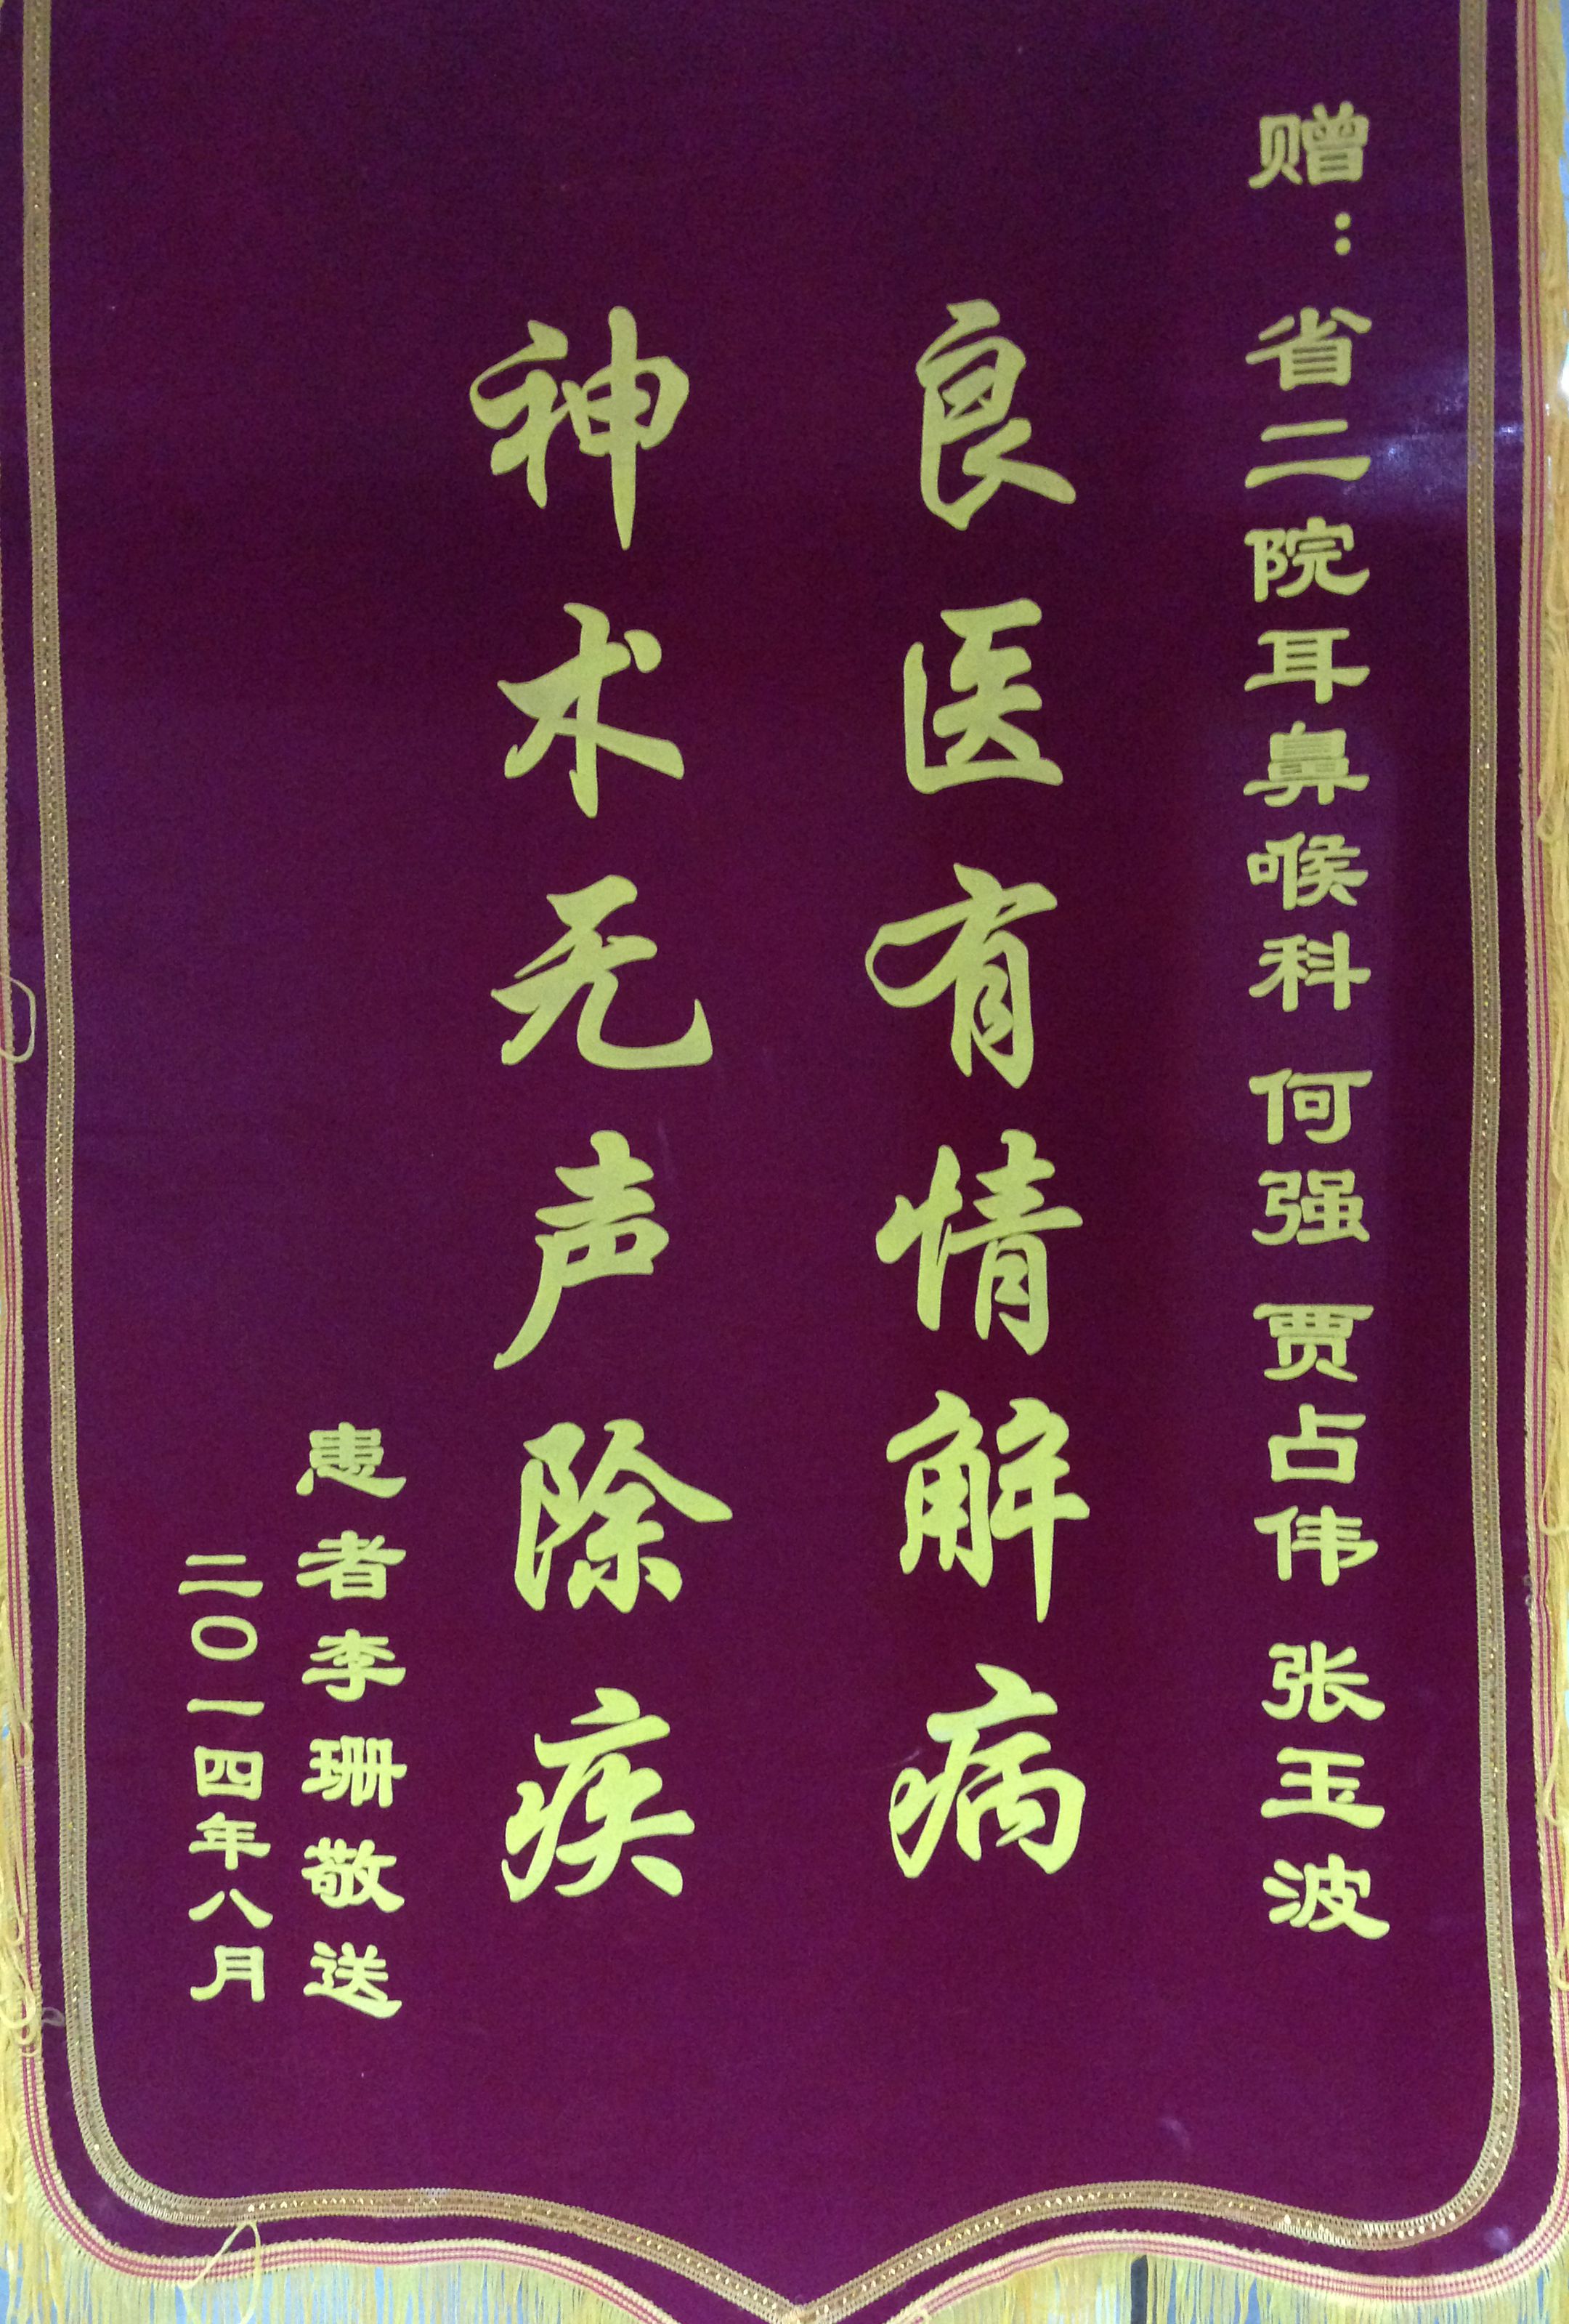 赠：省二院耳鼻喉科 何强 贾占伟 张玉波
良医有情解病
神术无声除疾
患者李珊敬送
二〇一四年八月